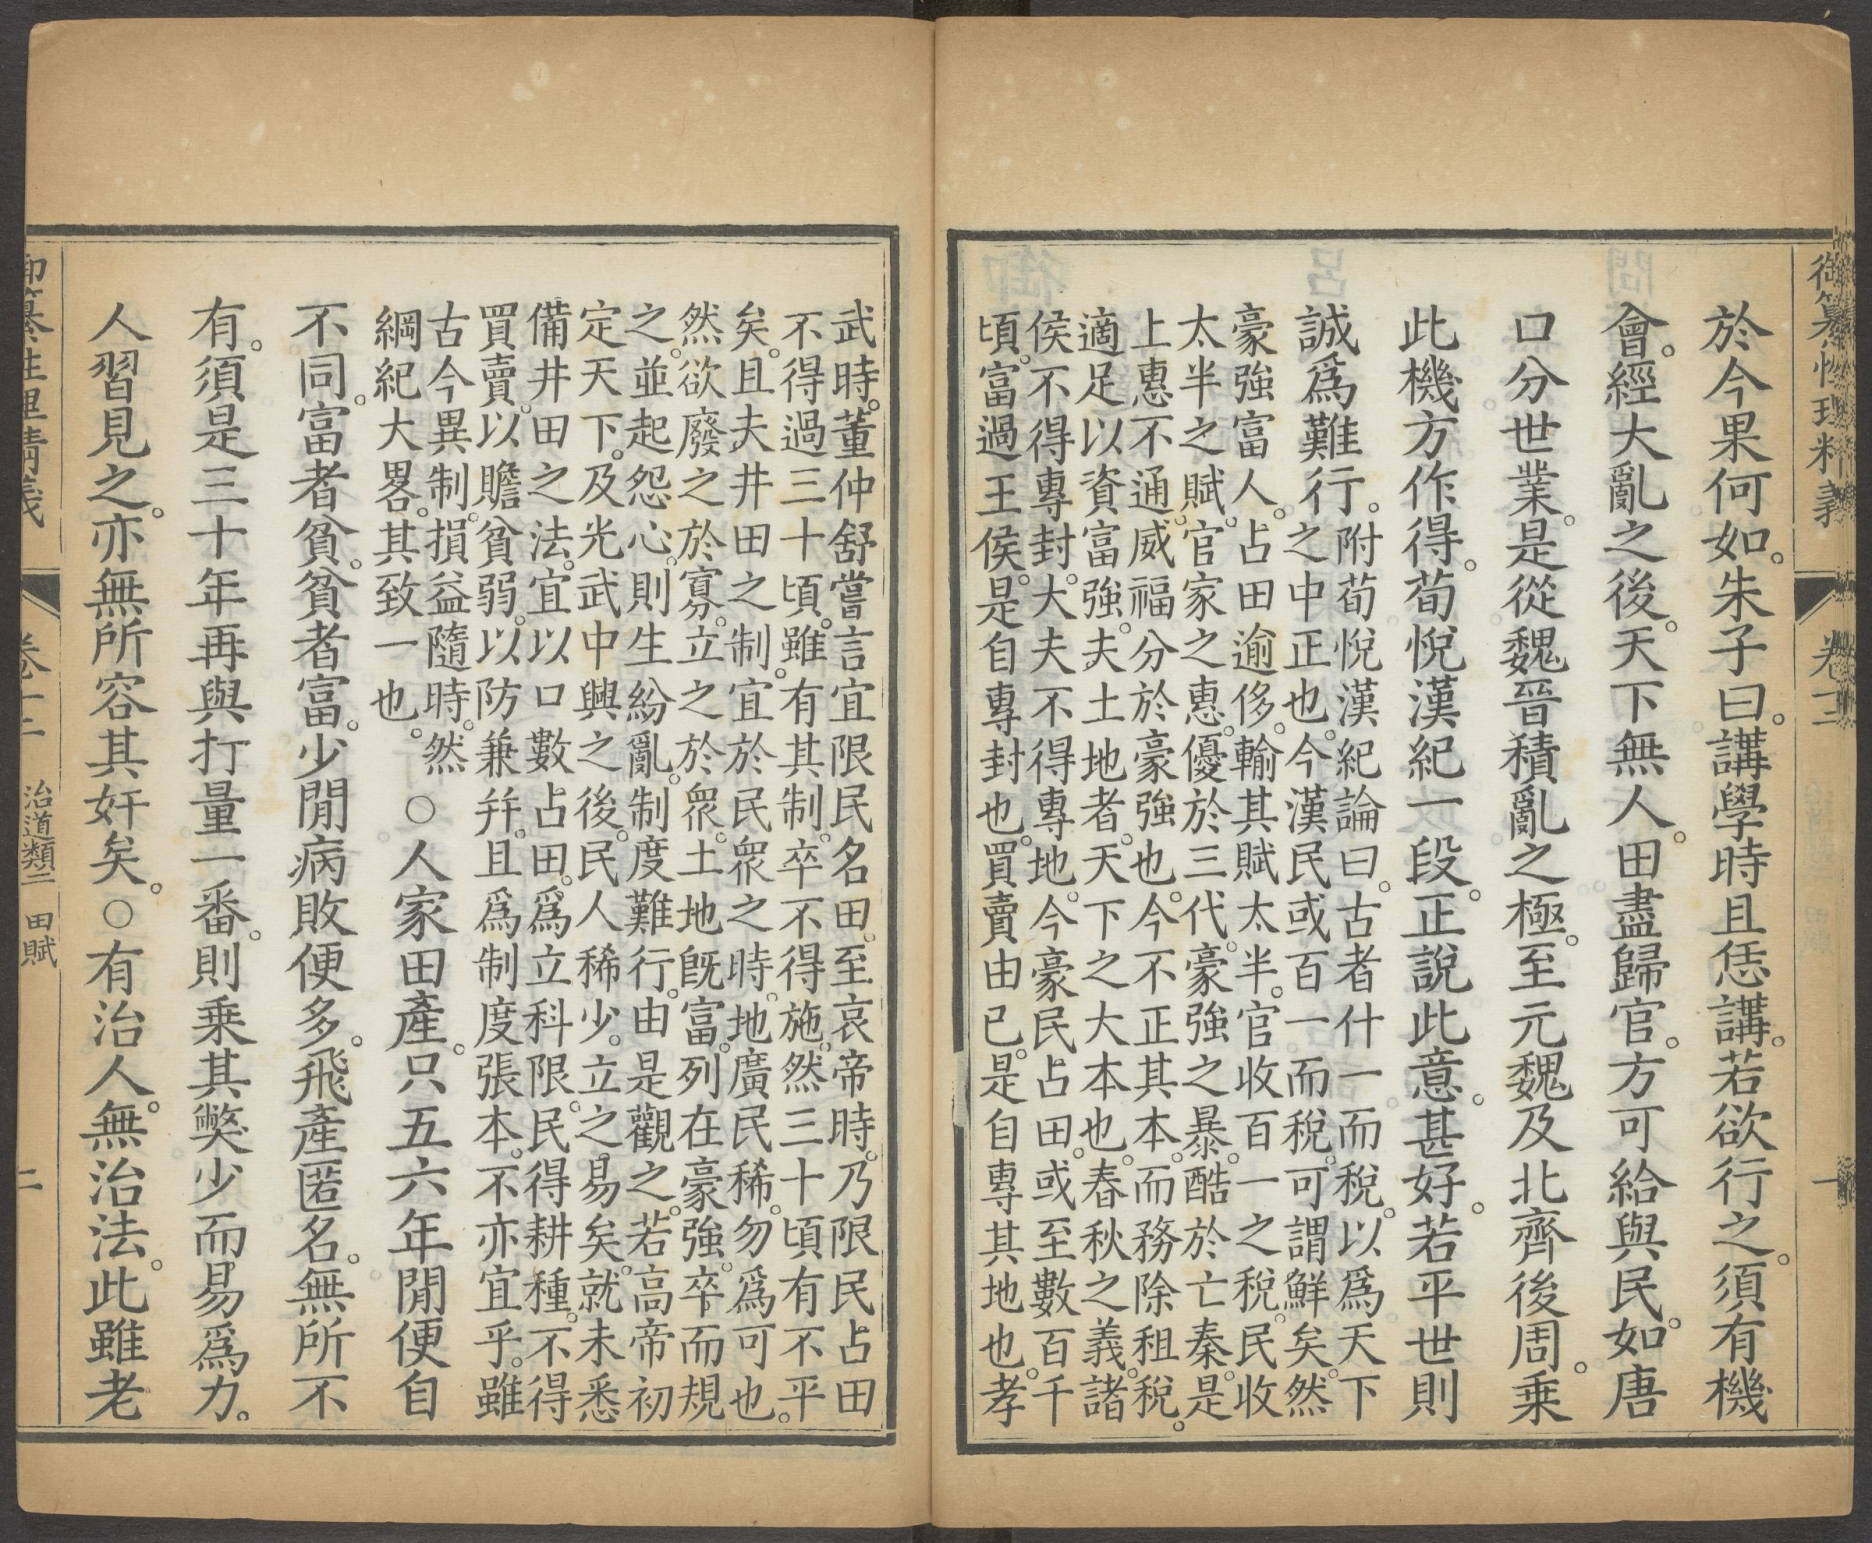 御纂性理精義 卷十二 一
於今果何如。朱子曰。講學時且恁講。若欲行之。須有機
會。經大亂之後。天下無人。田盡歸官。方可給與民。如唐
口分世業。是從魏晉積亂之極。至元魏及北齊後周。乘
此機方作得。荀悅漢紀一段。正說此意。甚好。若平世則
誠爲難行。附荀悅漢紀論曰。古者什一而稅。以爲天下
之中正也。今漢民或百一而稅。可謂鮮矣。然
豪強富人。占田逾侈。輸其賦太半。官收百一之稅。民收
太半之賦。官家之惠。優於三代。豪強之暴。酷於亡秦。是
上惠不通。威福分於豪強也。今不正其本。而務除租稅。
適足以資富強。夫土地者。天下之大本也。春秋之義。諸
侯不得專封。大夫不得專地。今豪民占田。或至數百千
頃。富過王侯。是自專封也。買賣由已。是自專其地也。孝
武時。董仲舒嘗言宜限民名田。至哀帝時。乃限民占田
不得過三十頃。雖有其制。卒不得施。然三十頃有不平
矣。且夫井田之制。宜於民衆之時。地廣民稀。勿爲可也。
然欲廢之於寡。立之於衆。土地旣富。列在豪強。卒而規
之。並起怨心。則生紛亂。制度難行。由是觀之。若高帝初
定天下。及光武中興之後。民人稀少。立之易矣。就未悉
備井田之法。宜以口數占田。爲立科限。民得耕種。不得
買賣。以贍貧弱。以防兼幷。且爲制度張本。不亦宜乎。雖
古今異制。損益隨時。然
綱紀大畧。其致一也。○人家田產。只五六年閒便自
不同。富者貧。貧者富。少閒病敗便多。飛產匿名。無所不
有。須是三十年再與打量一番。則乘其獘少而易爲力。
人習見之。亦無所容其奸矣。○有治人。無治法。此雖老
御纂性理精義 卷十二 治道類二 田賦 二